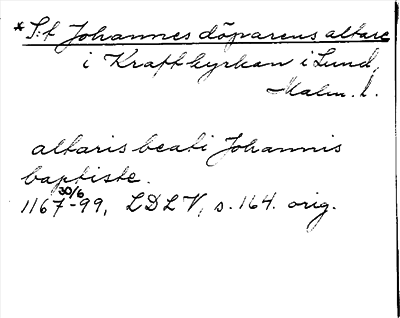 * S:t Johannes döparens altare
i Kraftkyrkan i Lund,
Malm. l.
altaris beati Johannis
baptiste.
1167 30/6 -99, LDLV, s. 164. orig.